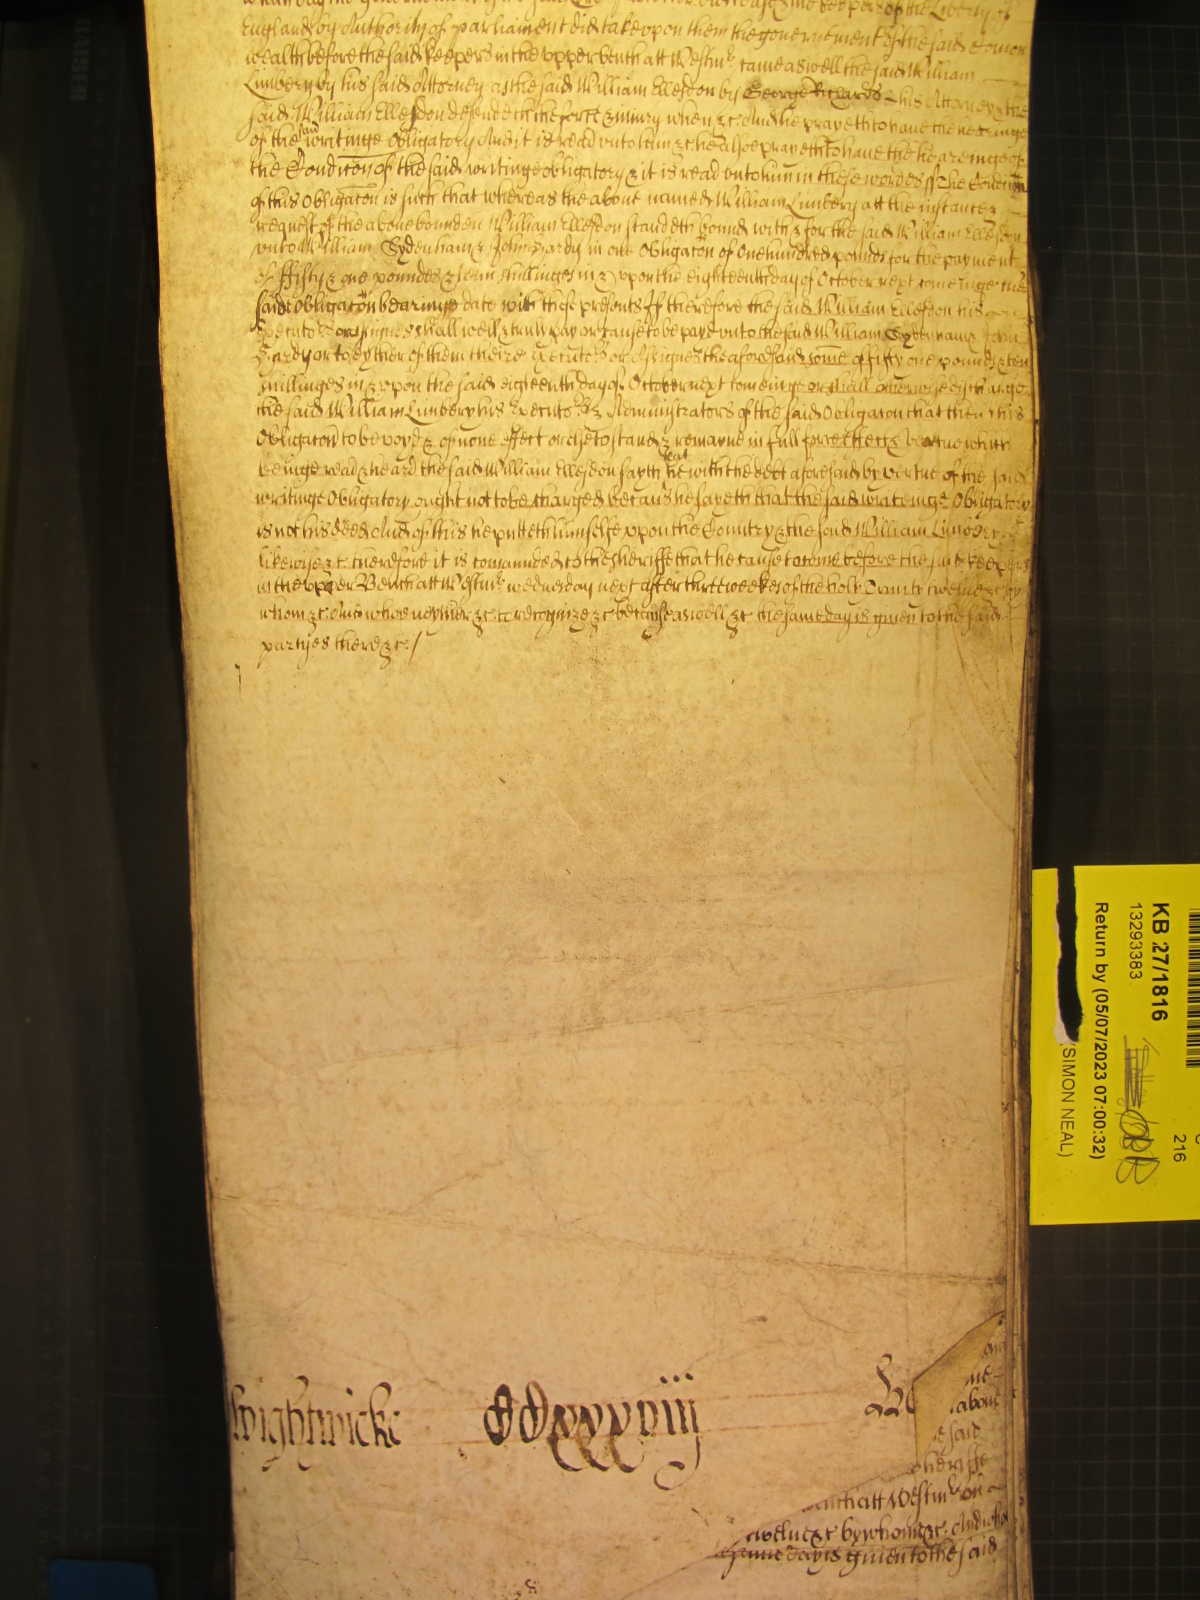 England by Authority of parliament did take upon them the governement of the said Comon
wealth before the said keepers in the upper bench att Westmr. came aswell the said William
Limbery by his said Attorney as the said William Ellesdon by George Richards his Attorney & the
said William Ellesdon defendeth the force & iniury when &c. And he prayeth to have the hearinge
of the said writinge Obligatory And it is read unto him &c he alsoe prayeth to have the heareinge of
the Condicon of the said writinge obligatory & it is read unto him in these wordes ss The Condicon
of this Obligacon is such that whereas the above named William Limbery att the instance &
request of the above bounden William Ellesdon standeth bound with & for the said William Ellesdon
unto William Sydenham & John Hardy in one Obligacon of One hundred pounds for the payment
of ffifty & one poundes & tenn shillinges in & upon the eighteenth day of October next comeinge the
said Obligacon bearinge date with these presents If therefore the said William Ellesdon his
Executors or assignes shall well & truly pay or cause to be payd unto the said William Sydenham & John
Hardy or to eyther of them theire Executors or Assignes the aforesaid some of fifty one pounds & ten
shillinges in & upon the said eighteenth day of October next comeinge or shall otherwise discharge
the said William Limbery his Executors & Administrators of the said Obligacon that then this
Obligacon to be voyd & of none effect or else to stand & remayne in full force effect & vertue which
beinge read & heard the said William Ellesdon sayth that he with the debt aforesaid by vertue of the said
writinge Obligatory ought not to be charged because he sayeth that the said writeinge Obligatory
is not his deed And of this he putteth himselfe upon the Country & the said William Limbery
likewise &c. therefore it is comaunded to the Sheriffe that he cause to come before the said keepers
in the upper Bench att Westmr. wednesday next after three weekes of the holy Trinity twelve &c by
whom &c. And who neyther &c. to recognize &c because aswell &c the same day is given to the said
partyes there &c./
Wightwicke CCxxxviij
above
e said
Sheriffe
Bench att Westmr. on
twelve &c by whom &c. And who
same day is given to the said
KB 27/1816
13293383
Return by (05/07/2023 07:00:32)
(SIMON NEAL)
216